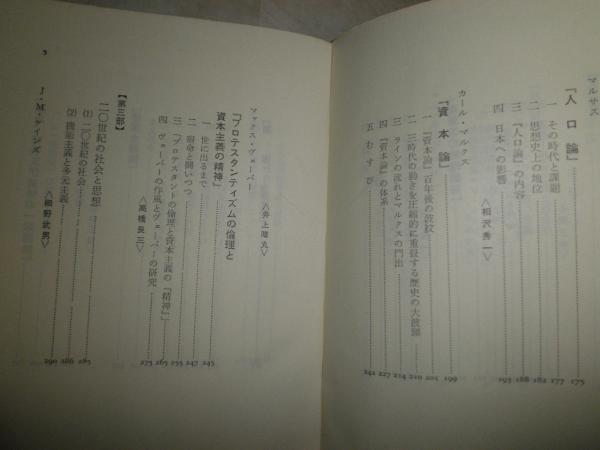 マルサス
『人口論』 175
一 その時代と課題 177
二 思想史上の地位 182
三 『人口論』の内容 188
四 日本への影響 193
〈相沢秀一〉
カール・マルクス
『資本論』 199
一 『資本論』百年後の波紋 201
二 三時代の動きを圧縮的に重畳する歴史の大波頭 210
三 ラインの流れとマルクスの門出 214
四 『資本論』の体系 227
五 むすび 242
〈井上晴丸〉
マックス・ヴェーバー
『プロテスタンティズムの倫理と
資本主義の精神』 245
一 世に出るまで 247
二 宿命と闘いつつ 255
三 「プロテスタントの倫理と資本主義の『精神』」 265
四 ヴェーバーの作風とヴェーバーの研究 275
〈高橋良三〉
【第三部】
二〇世紀の社会と思想
(1) 二〇世紀の社会 285
(2) 機能主義と多元主義 286
〈細野武男〉
J・M・ケインズ 290
5